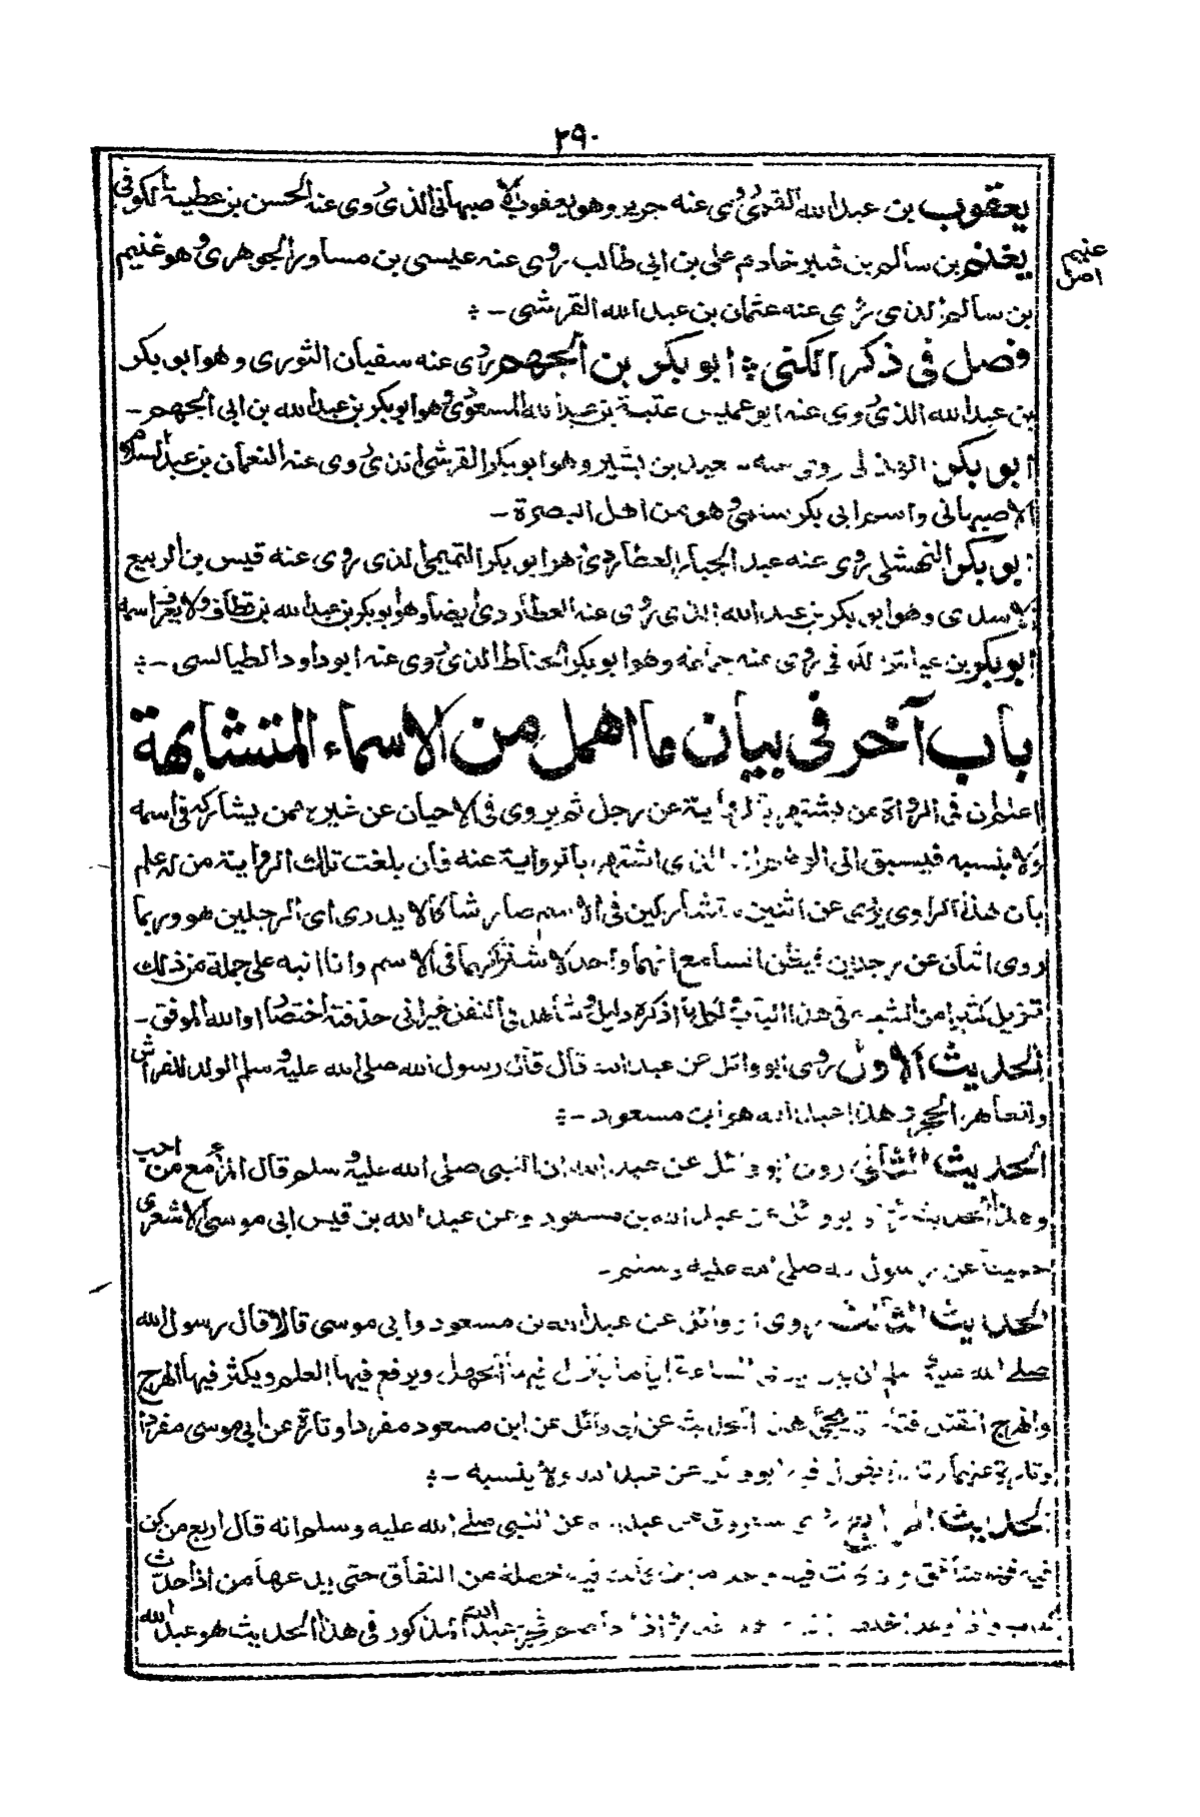 ٢٩٠
يعقوب بن عبد الله القمى روى عنه جرير وهو يعقوب الاصبهانى الذى روى عنه الحسن بن عطية الكوفى
يغنم بن سالم بن قنبر خادم على بن ابى طالب روى عنه عيسى بن مساور الجوهرى وهو غنيم
غنيم
اصل
بن سالم الذى روى عنه عثمان بن عبد الله القرشى -
فصل فى ذكر الكنى ابو بكر بن الجهم روى عنه سفيان الثورى وهو ابو بكر
بن عبد الله الذى روى عنه ابو عميس عتبة بن عبد الله المسعودى وهو ابو بكر بن عبد الله بن ابى الجهم -
ابو بكر الهذلى روى عنه بن بشير وهو ابو بكر القرشى الذى روى عنه النعمان بن عبد السلام
الاصبهانى واسم ابى بكر سلمى وهو من اهل البصرة -
ابو بكر النهشلى روى عنه عبد الجبار العطاردى هو ابو بكر التميمى الذى روى عنه قيس بن الربيع
الاسدى وهو ابو بكر بن عبد الله الذى روى عنه العطاردى ايضا وهو ابو بكر بن عبد الله بن قطاف ولا يعرف اسمه
ابو بكر بن عياش روى عنه جماعة وهو ابو بكر الحناط الذى روى عنه ابو داود الطيالسى -
باب آخر فى بيان ما اهمل من الاسماء المتشابهة
اعلم ان فى الرواة من يشتهر بالرواية عن رجل ثم يروى فى الاحيان عن غيره ممن يشاركه فى اسمه
ولا ينسبه فيسبق الى الوهم انه الذى اشتهر بالرواية عنه فان بلغت تلك الرواية من له علم
بان هذا الراوى يروى عن اثنين متشاركين فى الاسم صار شاكا لا يدرى اى الرجلين هو وربما
روى اثنان عن رجلين يظن السامع انهما واحد لاشتراكهما فى الاسم وانا انبه على جملة من ذلك
تزيل كثيرا من الشبه فى هذا الباب ولكل ما اذكره دليل وشاهد فى النفس غير انى حذفته اختصارا والله الموفق -
الحديث الاول روى ابو وائل عن عبد الله قال قال رسول الله صلى الله عليه وسلم الولد للفراش
وللعاهر الحجر وهذا عبد الله هو ابن مسعود -
الحديث الثانى روى ابو وائل عن عبد الله ان النبى صلى الله عليه وسلم قال المرأ مع من احب
وهذا الحديث ابو وائل عن عبد الله بن مسعود وعن عبد الله بن قيس ابى موسى الاشعرى
جميعا عن رسول الله صلى الله عليه وسلم -
الحديث الثالث روى ابو وائل عن عبد الله بن مسعود وابى موسى قالا قال رسول الله
صلى الله عليه وسلم ان بين يدى الساعة اياما ينزل فيها الجهل ويرفع فيها العلم ويكثر فيها الهرج
والهرج القتل يجئ هذا الحديث عن ابى وائل عن ابن مسعود مفردا وتارة عن ابى موسى مفردا
وتارة عنهما يقول فيه ابو وائل عن عبد الله ولا ينسبه -
الحديث الرابع روى مسروق عن عبد الله عن النبى صلى الله عليه وسلم انه قال اربع من كن
فيه فهو منافق فيه خصلة من النفاق حتى يدعها من اذا حدث
كذب واذا وعد اخلف عبد الله المذكور فى هذا الحديث هو عبد الله